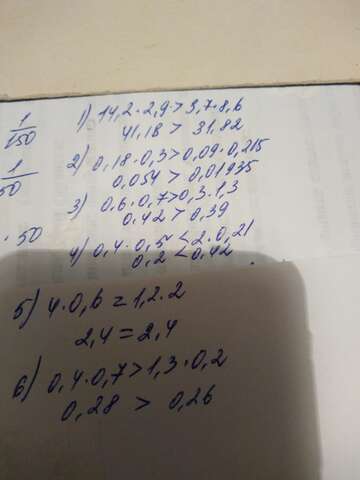 1/150
1/50
· 50
1) 14,2·2,9>3,7·8,6
41,18 > 31,82
2) 0,18·0,3>0,09·0,215
0,054 > 0,01935
3) 0,6·0,7>0,3·1,3
0,42 > 0,39
4) 0,4·0,5<2·0,21
0,2<0,42
5) 4·0,6=1,2·2
2,4=2,4
6) 0,4·0,7>1,3·0,2
0,28 > 0,26